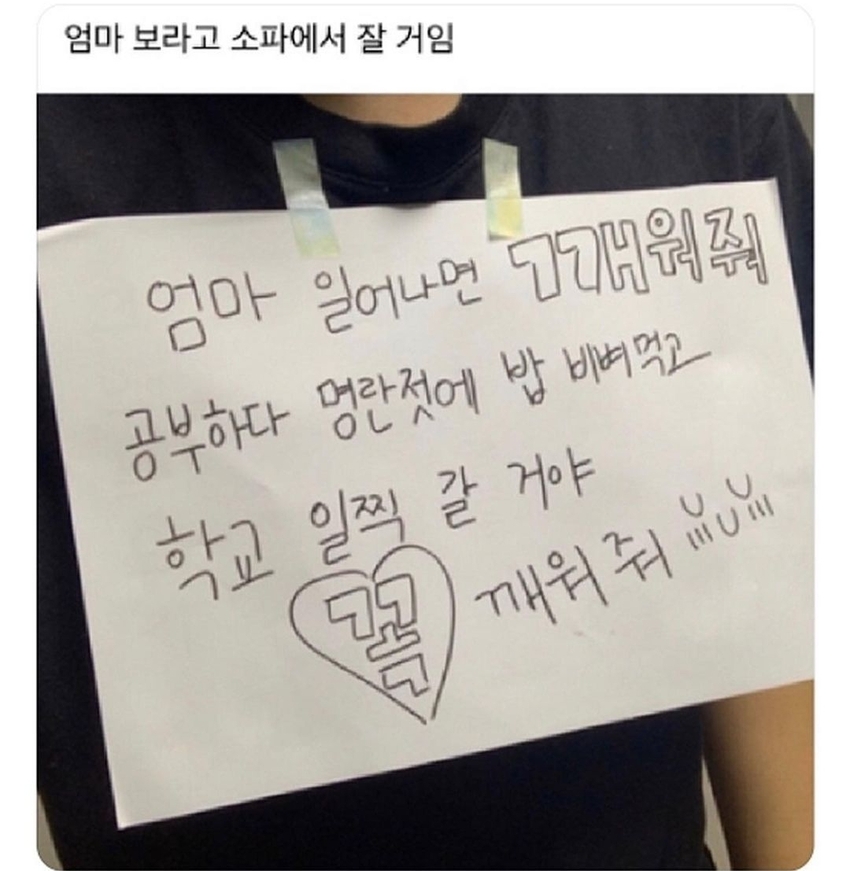 엄마 보라고 소파에서 잘 거임
엄마 일어나면 깨워줘
공부하다 명란젓에 밥 비벼먹고
학교 일찍 갈 거야
꼭 깨워 줘